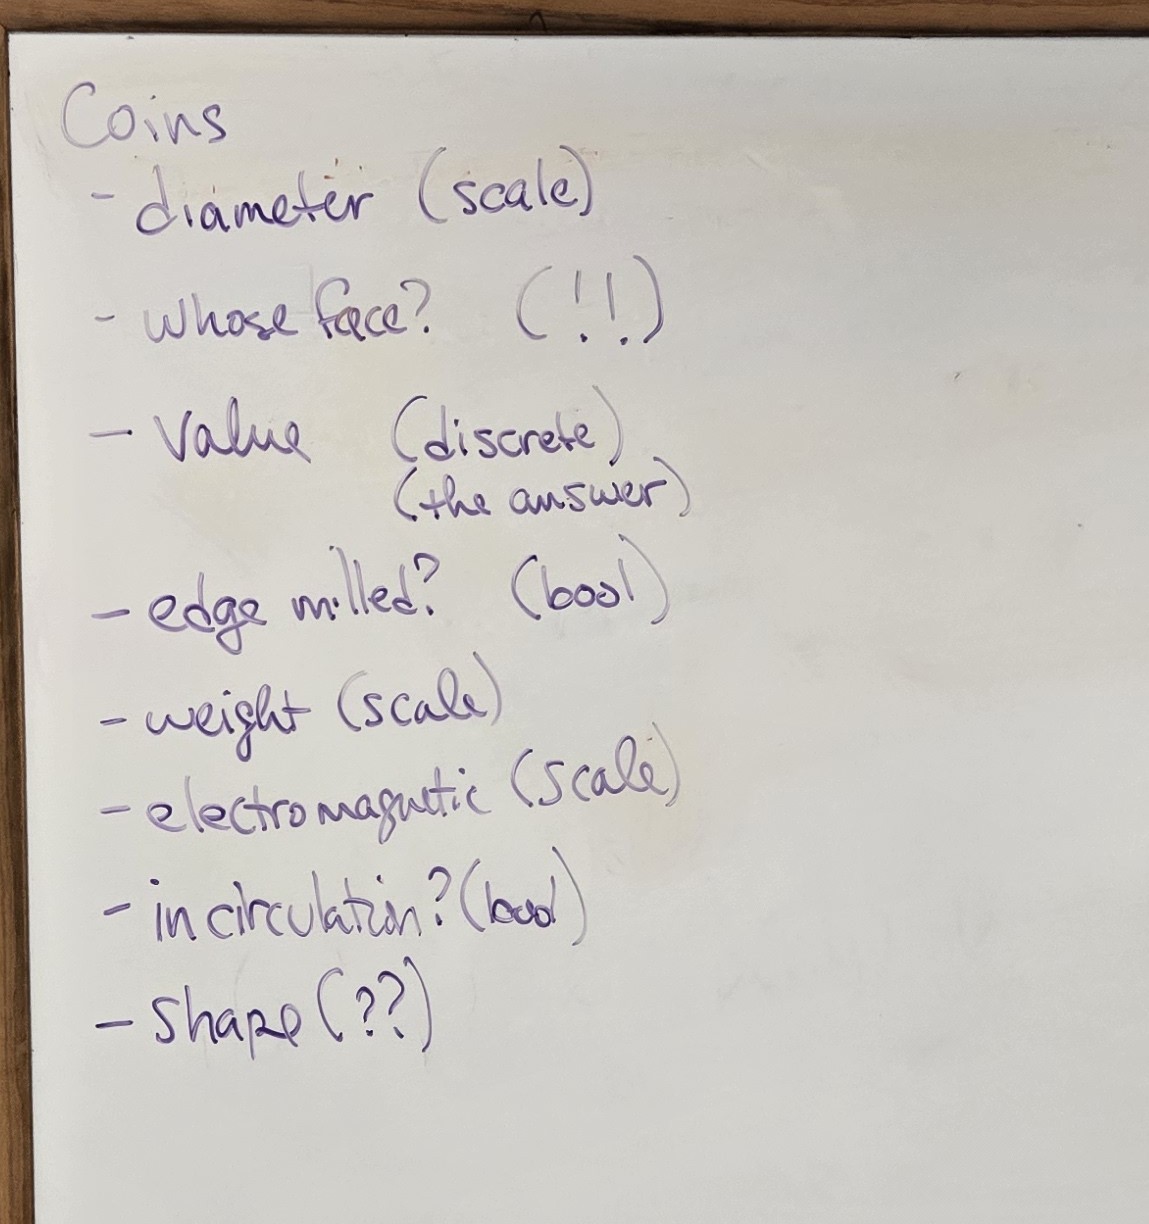 Coins
- diameter (scale)
- whose face? (!!)
- Value (discrete)
(the answer)
- edge milled? (bool)
- weight (scale)
- electromagnetic (scale)
- in circulation? (bool)
- shape (??)